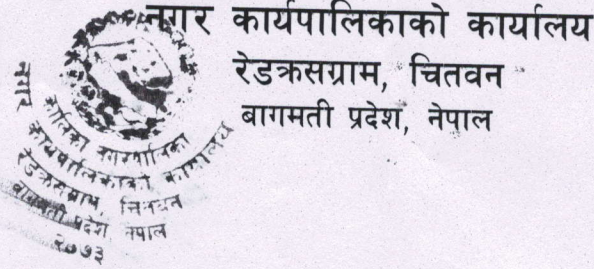 नगर कार्यपालिकाको कार्यालय
रेडक्रसग्राम, चितवन
बागमती प्रदेश, नेपाल
कालिका नगरपालिका
नगर कार्यपालिकाको कार्यालय
रेडक्रसग्राम, चितवन
बागमती प्रदेश नेपाल
२०७३